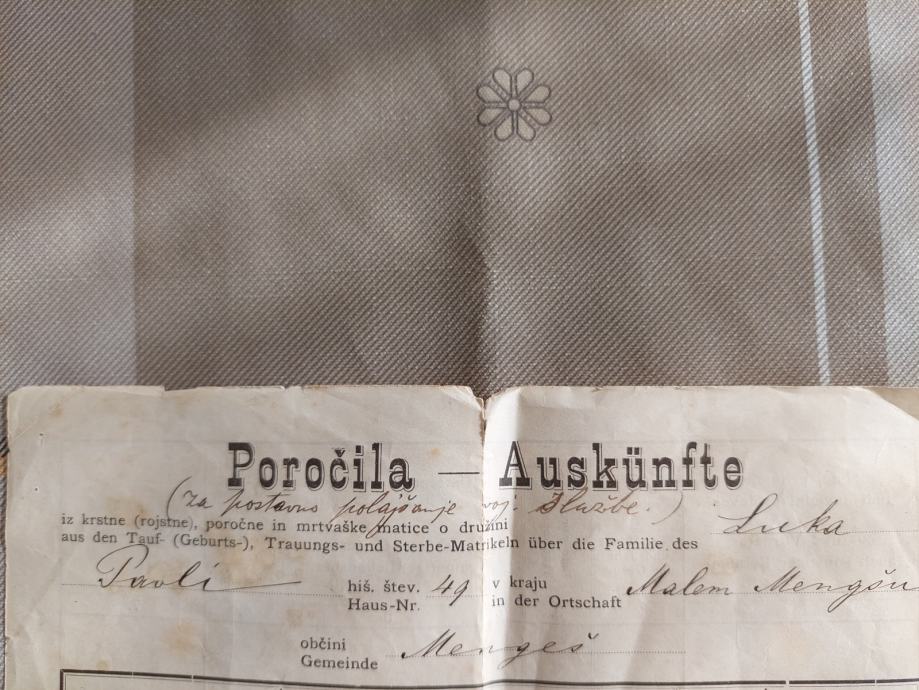 Poročila — Auskünfte
(za postavno polajšanje voj. službe.)
iz krstne (rojstne), poročne in mrtvaške matice o družini
aus den Tauf- (Geburts-), Trauungs- und Sterbe-Matrikeln über die Familie des Luka
Pavli hiš. štev. 49 v kraju Malem Mengšu
Haus-Nr. in der Ortschaft
občini Mengeš
Gemeinde